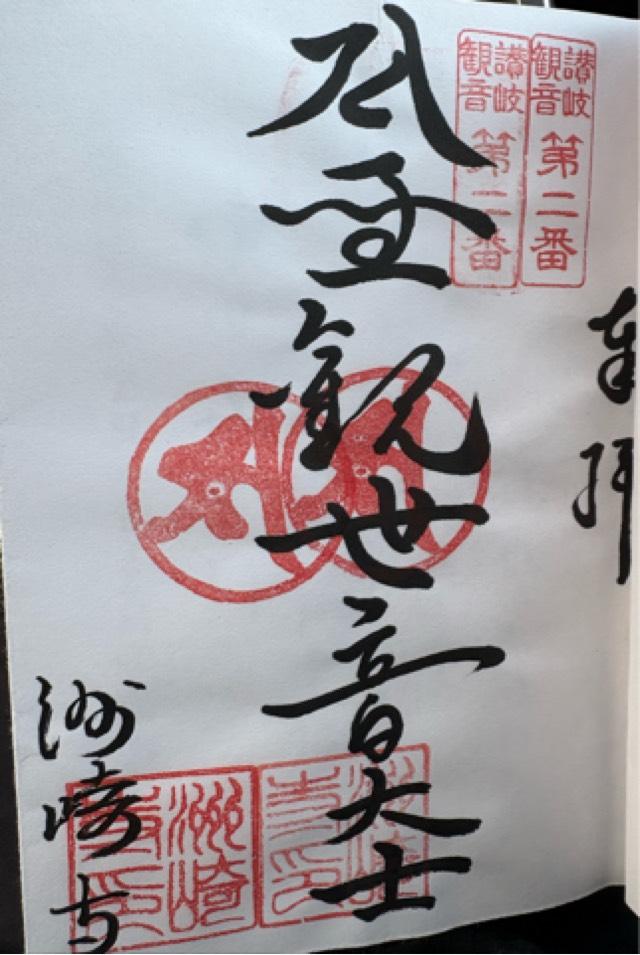 奉拝
讃岐
観音
第二番
讃岐
観音
第二番
聖観世音大士
洲崎
寺印
洲崎
寺印
洲崎寺